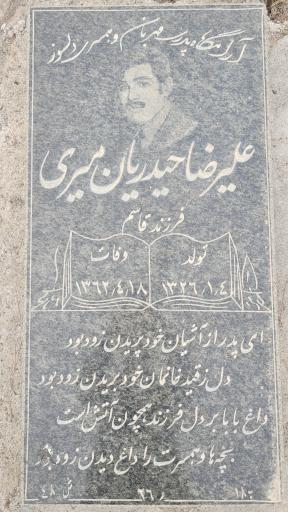 آرامگاه پدر مهربان و همسری دلسوز
علیرضا حیدریان میری
فرزند قاسم
تولد
وفات
۱۳۲۶/۱/۴
۱۳۶۲/۴/۱۸
ای پدر از آشیان خود پریدن زود بود
دل ز قید خانمان خود بریدن زود بود
داغ بابا بر دل فرزند همچون آتش است
بچه‌ها و همسرت را داغ دیدن زود بود
۱۸۰
ر ۲۶
ش ۴۸